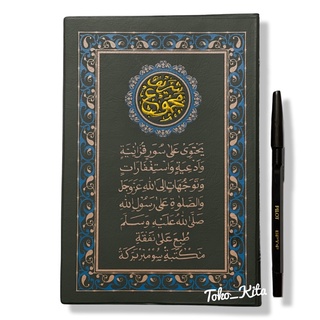 مجموع شريف
يحتوي على سور قرآنية
وأدعية واستغفارات
وتوجهات إلى الله عز وجل
والصلوة على رسول الله
صلى الله عليه وسلم
طبع على نفقة
مكتبة
Toko_Kita
PILOT